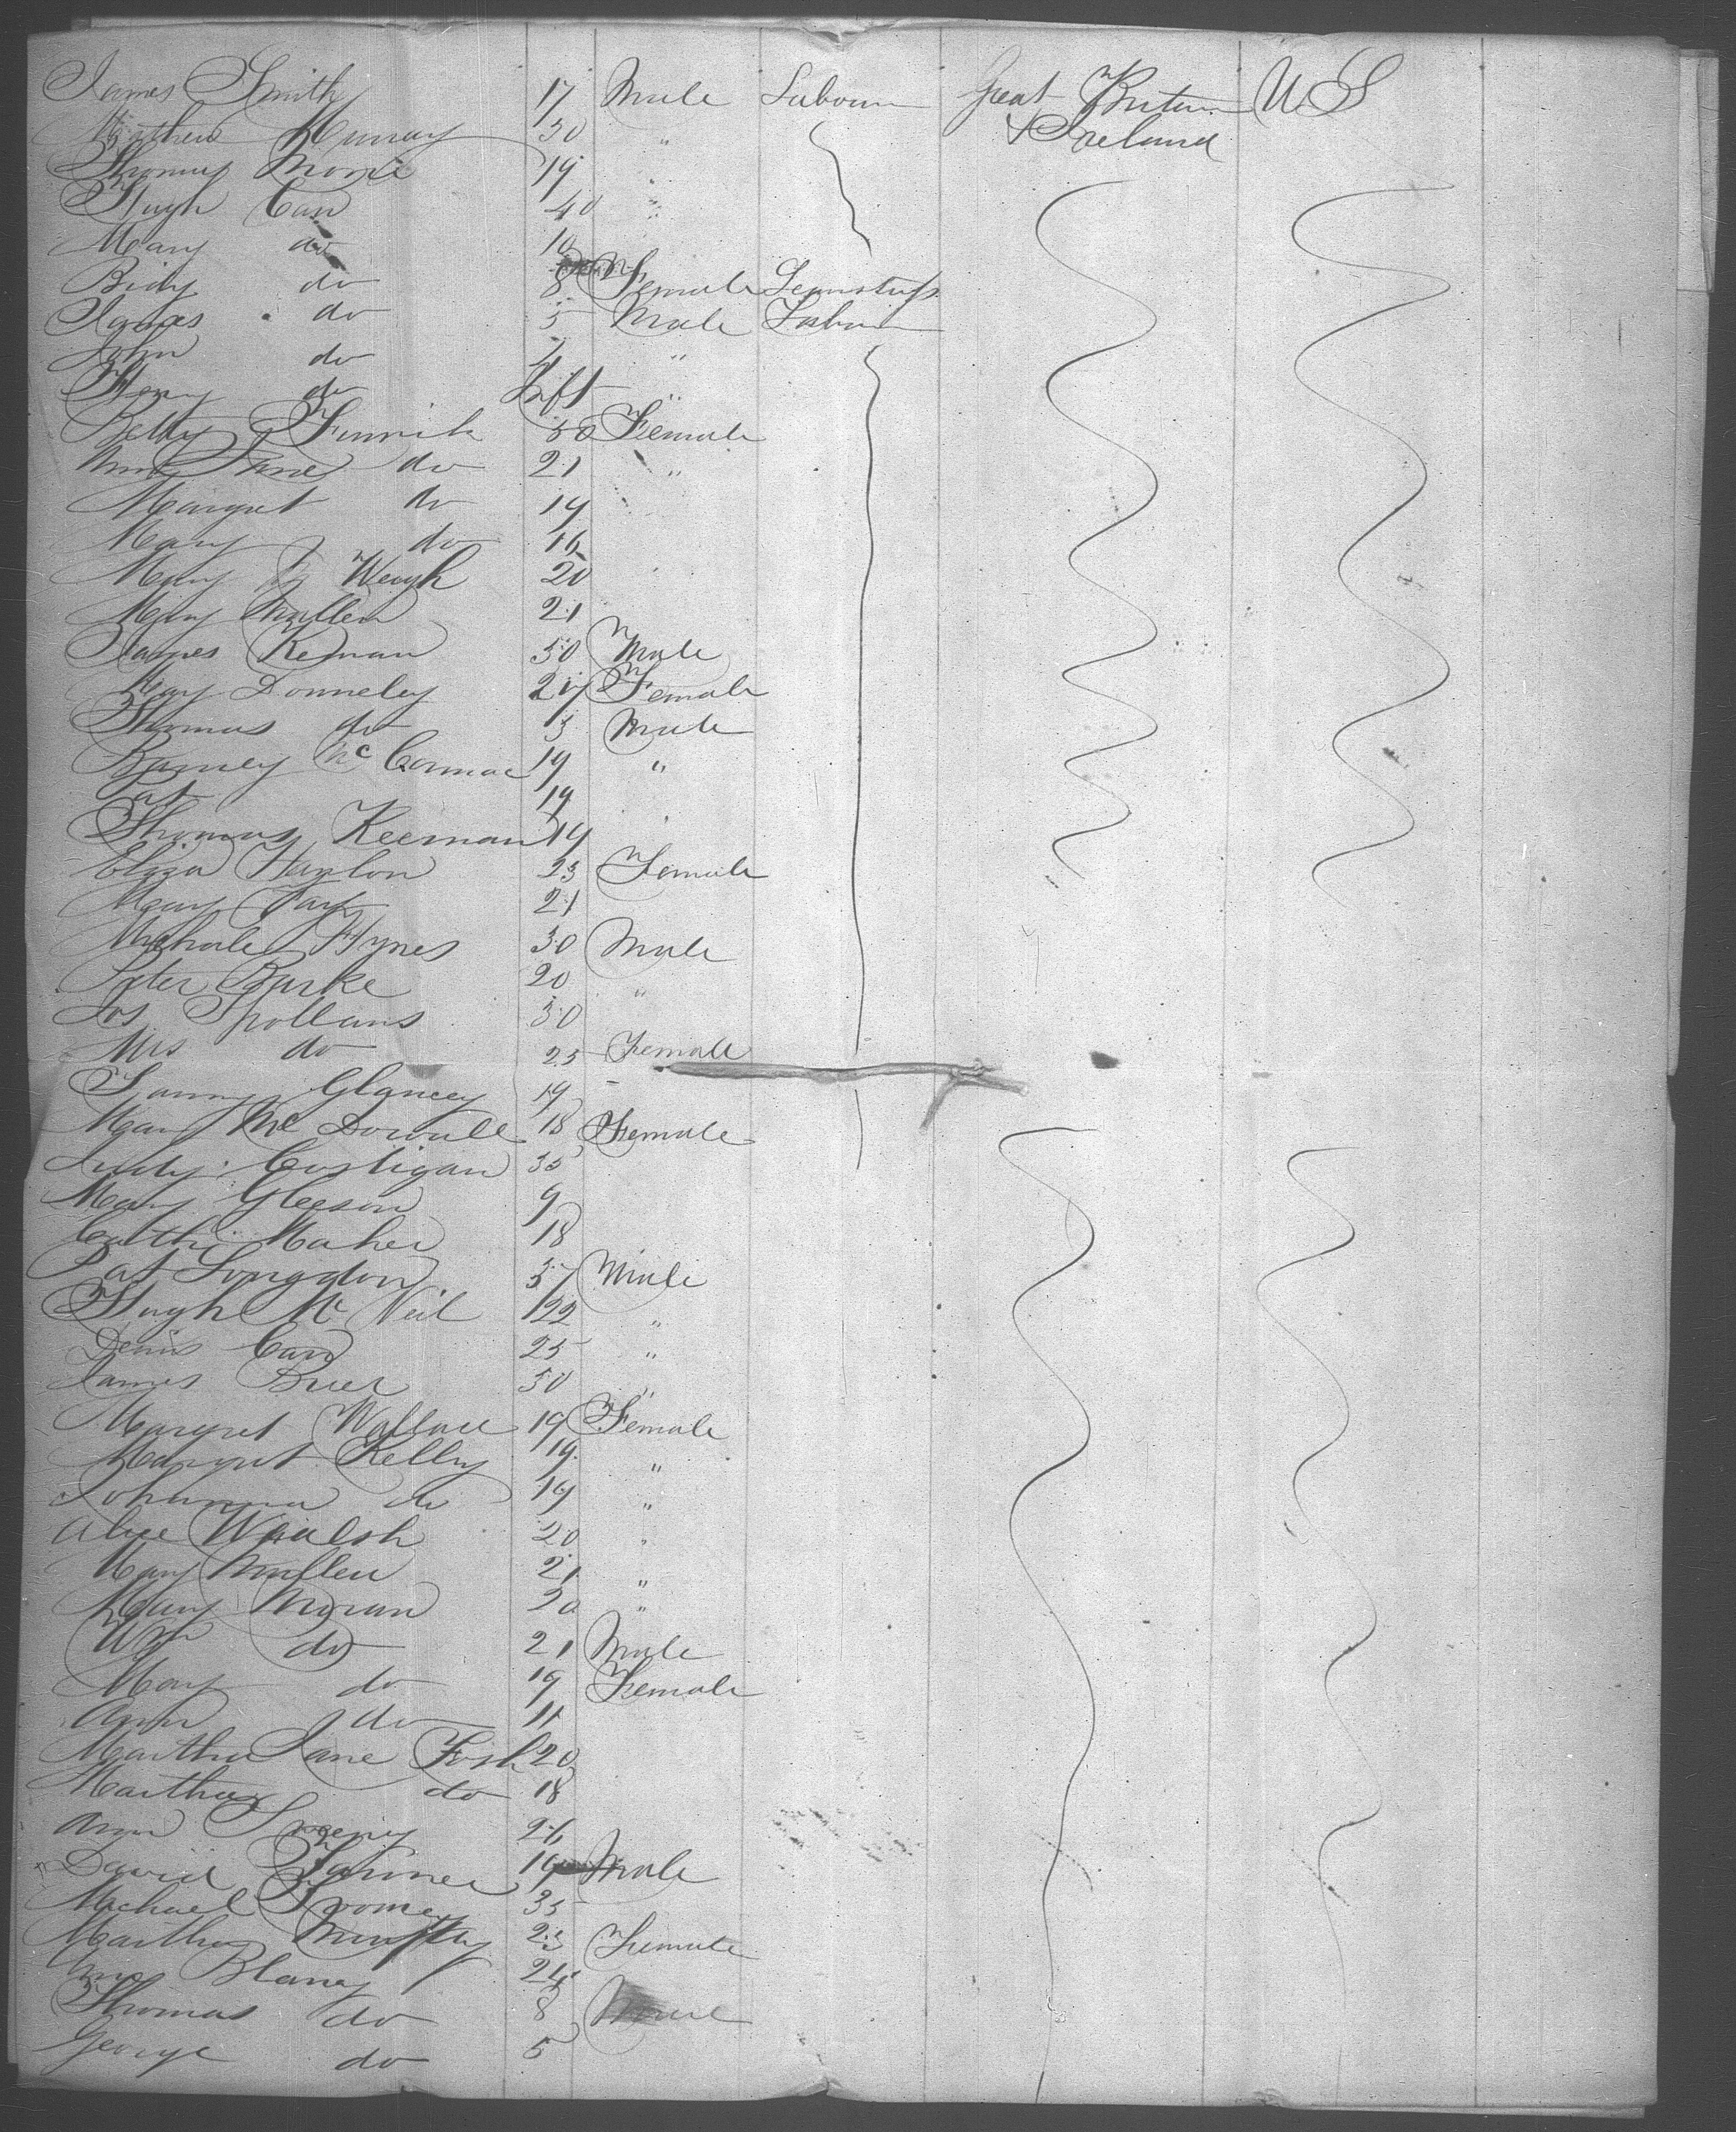 James Smith 17 Male Labourer Great Britain U S
Mathew Murray 30 " & Ireland
Thomas 19 "
Hugh Carr 40 "
Mary do 10
Bidy do 8 Female
James do 5 Male Labourer
John do "
Henry do Inft "
Betty 50 Female
Ann Jane do 21 "
Margret do 19
Mary do 16
Mary 20
Mary Mullen 21
James Kernan 30 Male
Mary Donneley 27 Female
Thomas do 3 Male
Barney McCormac 19 "
Pat 19
Thomas Keernan 19
Eliza Hanlon 23 Female
Mary 21
Michale Hynes 30 Male
Peter Burke 20 "
Jos Spollans 30
Mrs do 25 Female
Glancey 19
Mary McDowall 18 Female
Judy Costigan 35
Mary Gleeson 9
Cathe Maher 18
Pat Longdon 37 Male
Hugh McNeil 22 "
Denis Carr 25 "
James 30 "
Margret Wallace 19 Female
Margret Kelley 19 "
Johanna do 19 "
Alice Walsh 20 "
Mary Mullen 21 "
Mary Moran 20 "
Wm do 21 Male
Mary do 19 Female
Ann do 11
Martha Jane 20
Martha do 18
Ann Sweeney 26
David 19 Male
Michael Twomey 35
Martha 23 Female
Blaney 24
Thomas do 8 Male
George do 5